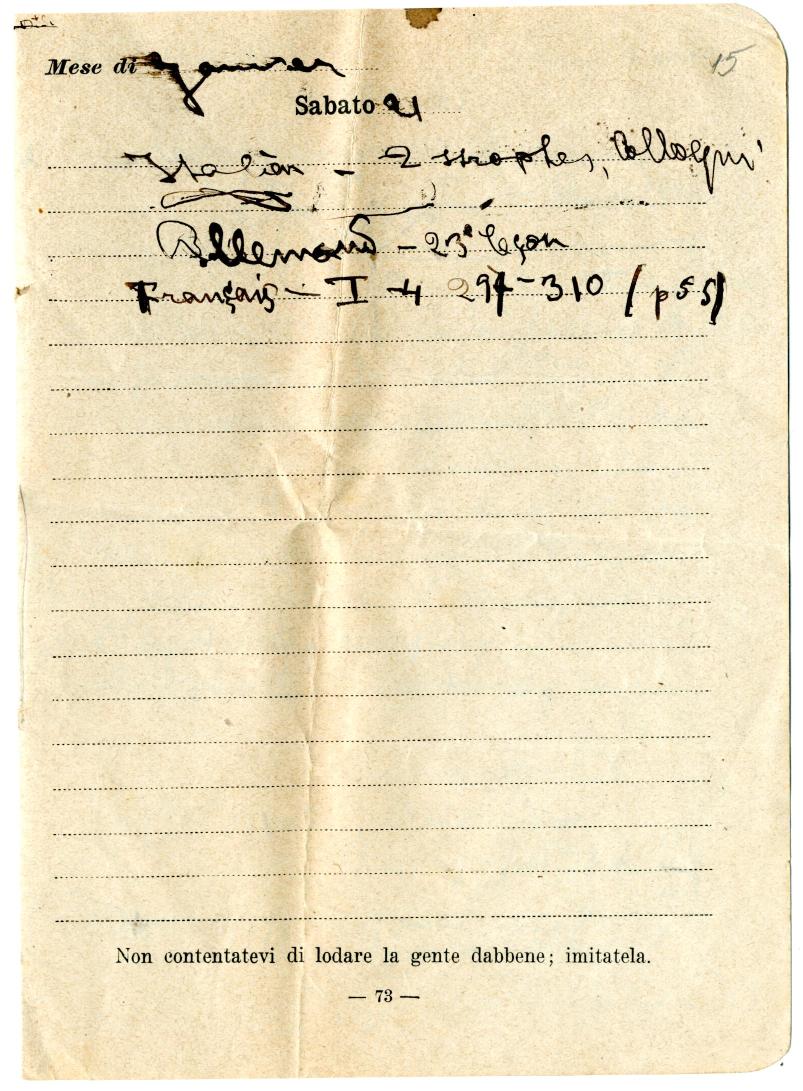 15
Mese di Janvier
Sabato 21
Italien - 2 strophes, Colloqui
Allemand - 23e leçon
Français - I 4 294-310 (p 55)
Non contentatevi di lodare la gente dabbene; imitatela.
— 73 —